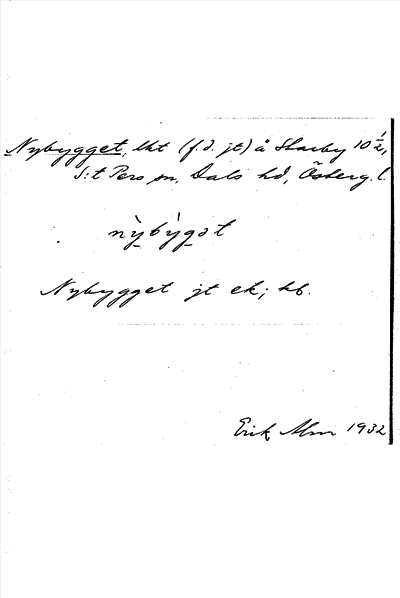 Nybygget, lht (f.d. jt) å Skarby 10 1/2,
S:t Pers sn, Dals hd, Österg. l.
nỳbỳgət
Nybygget jt ek; hb.
Erik Alm 1932